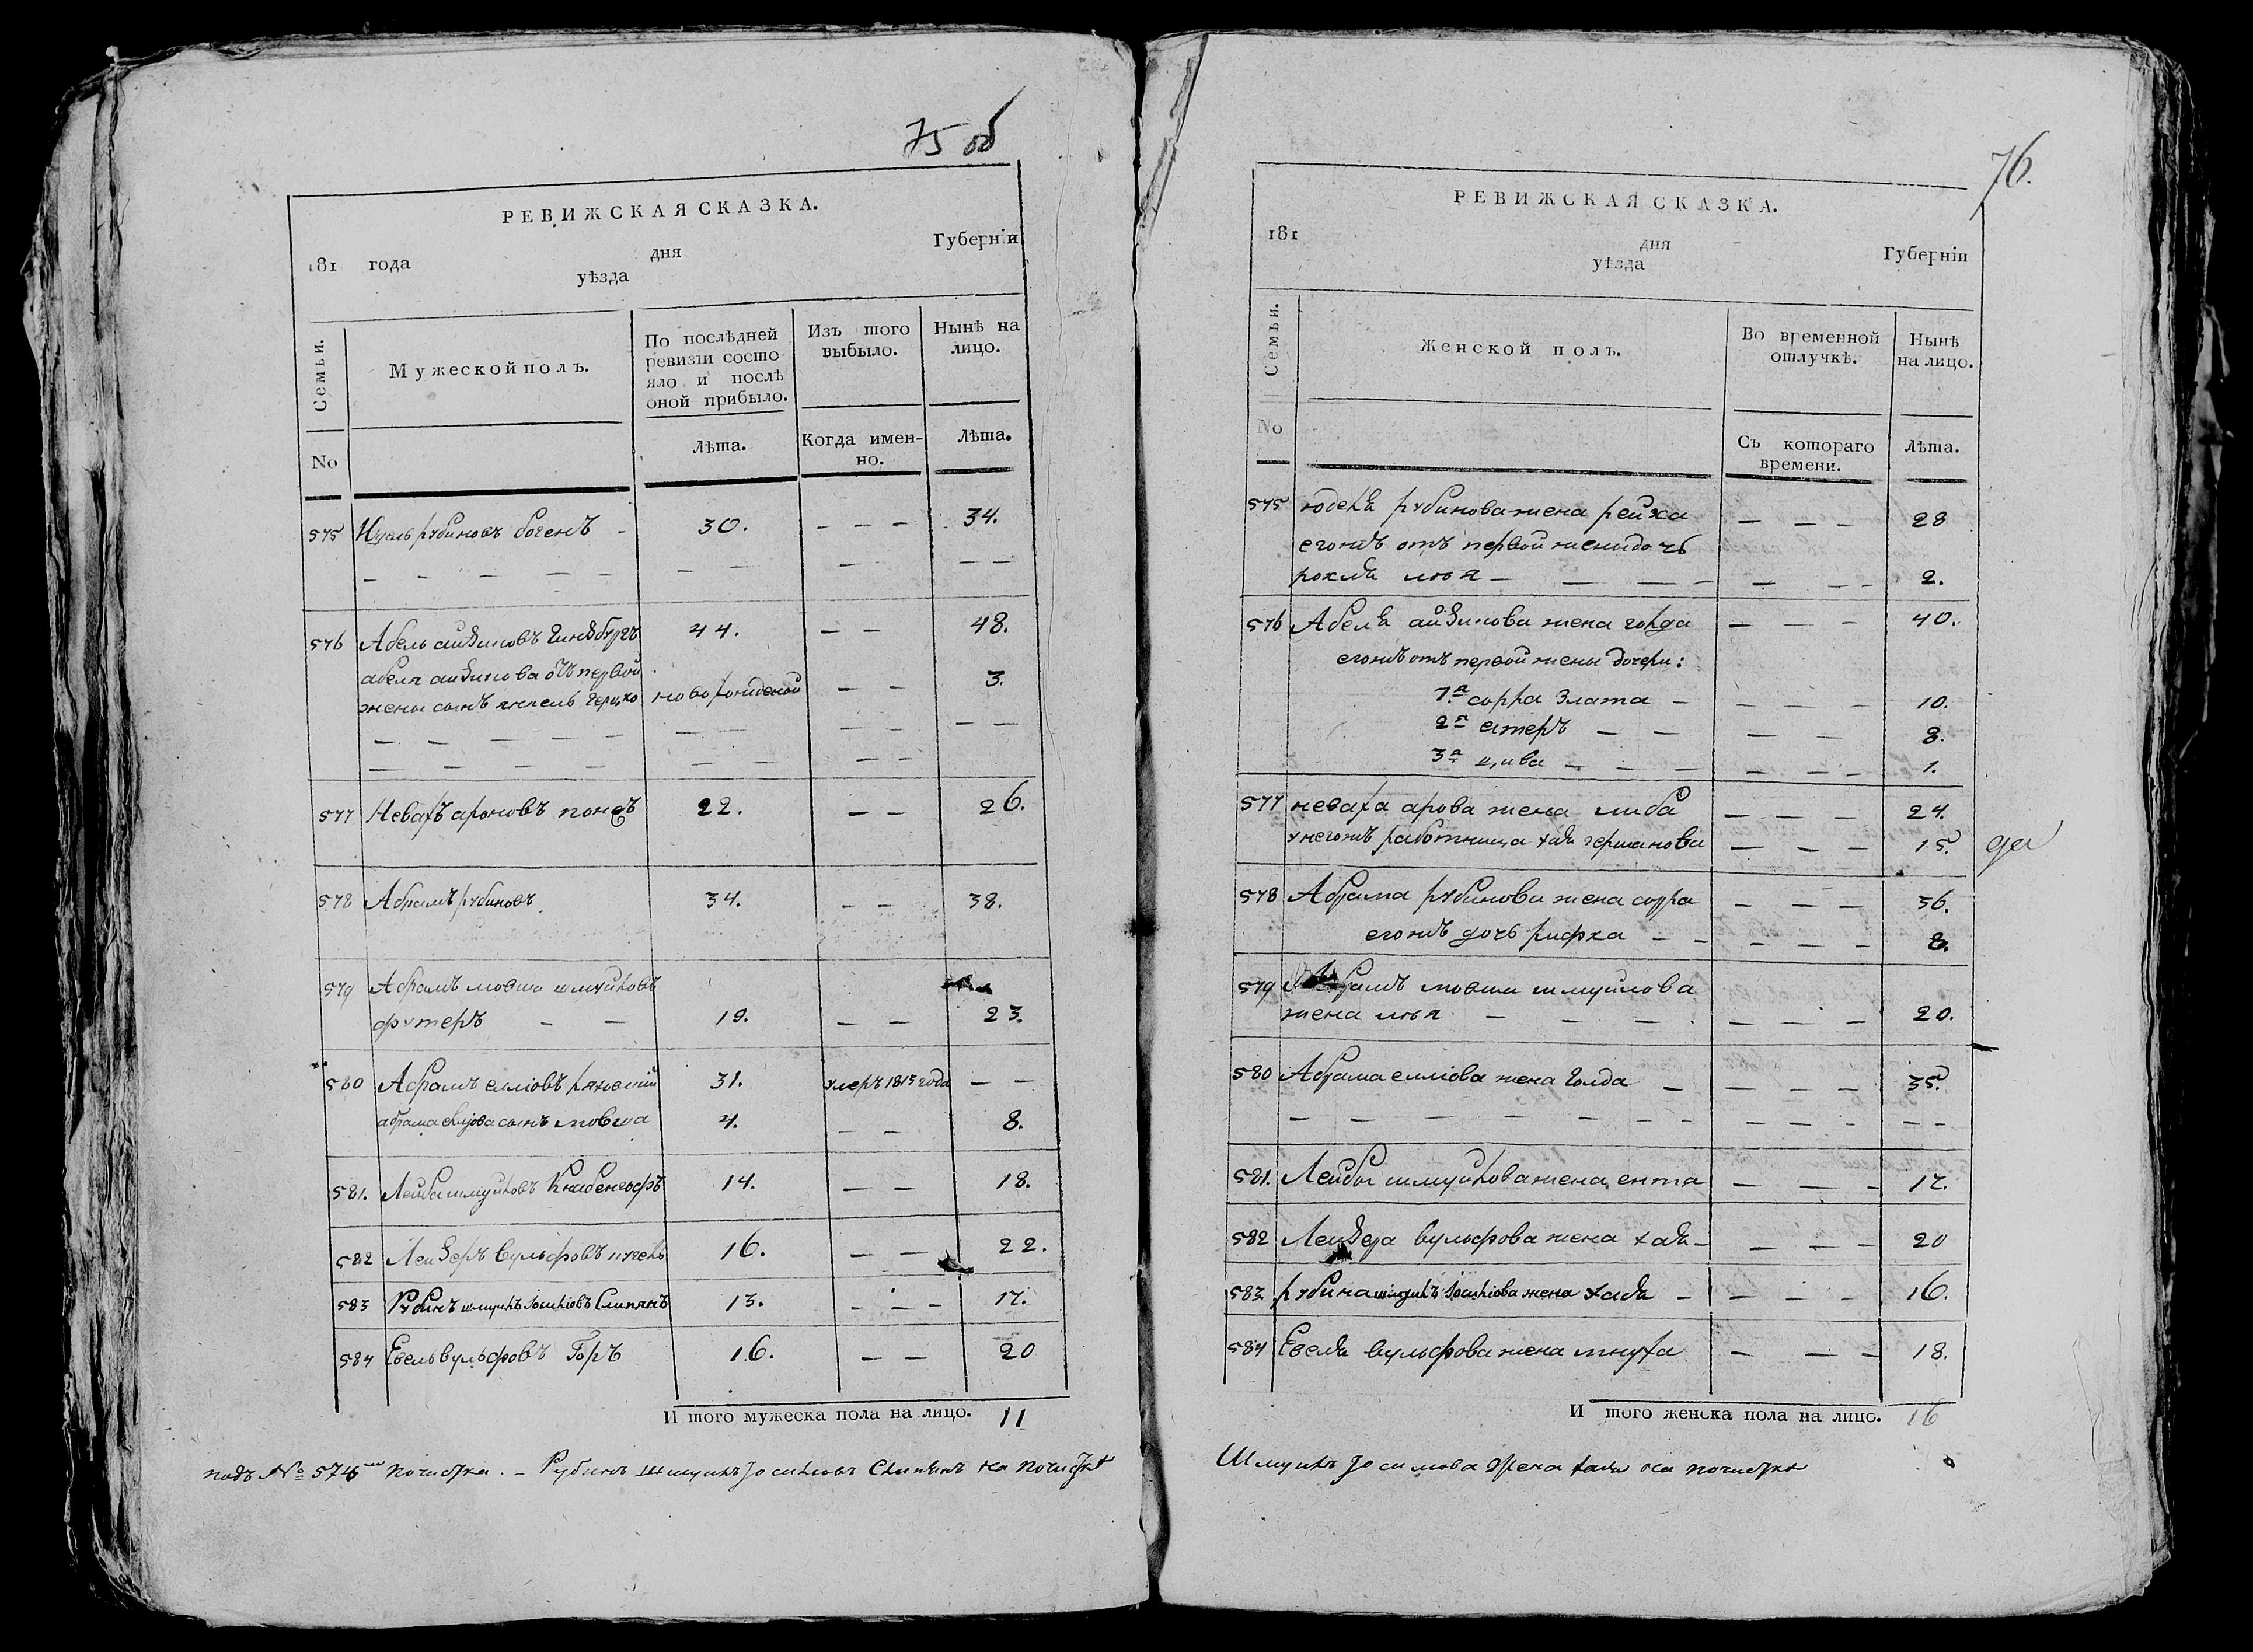 75 об
РЕВИЖСКАЯ СКАЗКА.
181 года дня Губерніи
уѣзда
Семьи.
Мужеской полъ.
По послѣдней ревизіи состояло и послѣ оной прибыло.
Изъ того выбыло.
Нынѣ на лицо.
No
Лѣта.
Когда именно.
Лѣта.
575 рубиновъ 30. — — — 34.
576 Абель айзиковъ 44. — — 48.
абеля айзикова отъ первой
жены сынъ новорожденой — — 3.
577 Невахъ ароновъ 22. — — 26.
578 Абрамъ рубиновъ 34. — — 38.
579 Абрамъ мовша шмуйловъ
футеръ — — 19. — — 23.
580 Абрамъ елліовъ 31. умеръ 1815 года — —
абрама еліова сынъ мовша 4. — — 8.
581. Лейба шмуйловъ 14. — — 18.
582 Лейзеръ вульфовъ 16. — — 22.
583 Рубинъ шмуйлъ іосиліовъ Слипянъ 13. — — — 17.
584 Евель вульфовъ Горъ 16. — — 20
И того мужеска пола на лицо. 11
подъ № 574 почистка. — Рубинъ шмуилъ Слипянъ на почистке
76.
РЕВИЖСКАЯ СКАЗКА.
181 дня Губерніи
уѣзда
Семьи.
Женской полъ.
Во временной отлучкѣ.
Нынѣ на лицо.
No
Съ котораго времени.
Лѣта.
575 рубинова жена рейха — — — 28
егожъ отъ первой жены дочь
рохля — — — — — 2.
576 Абеля айзикова жена — — — 40.
егожъ отъ первой жены дочери:
1я сорра злата — — — — 10.
2я естеръ — — — — 8.
3я цива — — — — — — 1.
577 неваха арова жена либа — — — 24.
у негожъ работница хая германова — — — 15. да
578 Абрама рубинова жена сорра — — — 36.
егожъ дочь рифка — — — — — — 8.
579 мовши шмуилова
жена — — — — — — 20.
580 Абрама елліова жена Голда — — — — 35.
581. Лейбы шмуйлова жена ента — — — 17.
582 Лейзера вульфова жена хая — — — — 20
583 рубина шмуилъ жена хая — — — — 16.
584 Евеля вульфова жена мнуха — — — 18.
И того женска пола на лицо. 16
Шмуилъ жена хая на почистке